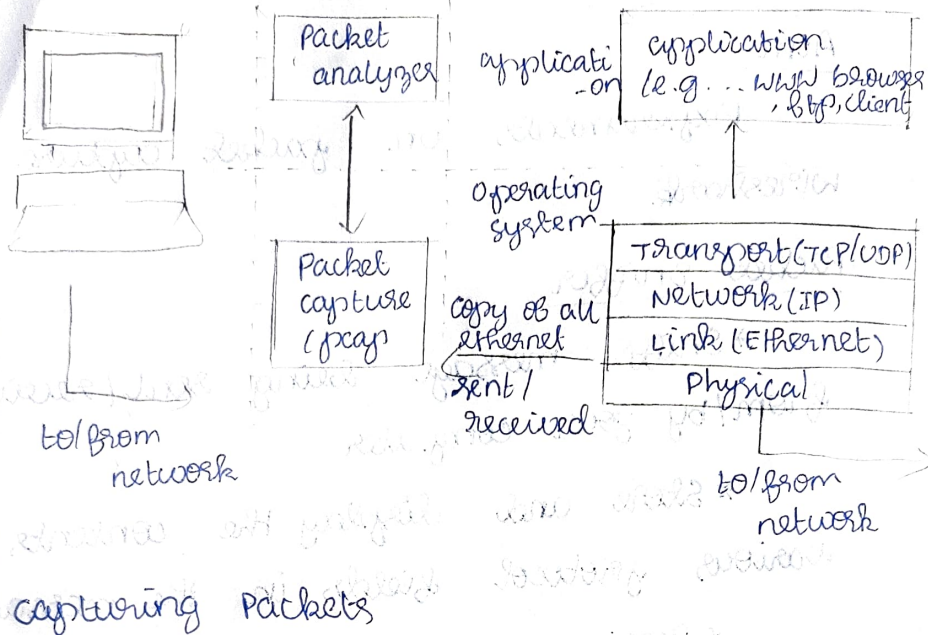 Packet
analyzer
applicati
-on
application
(e.g... www browser
, ftp, client
operating
system
Packet
capture
(pcap
copy of all
ethernet
sent/
received
Transport (TCP/UDP)
Network (IP)
Link (Ethernet)
Physical
to/from
network
to/from
network
capturing Packets